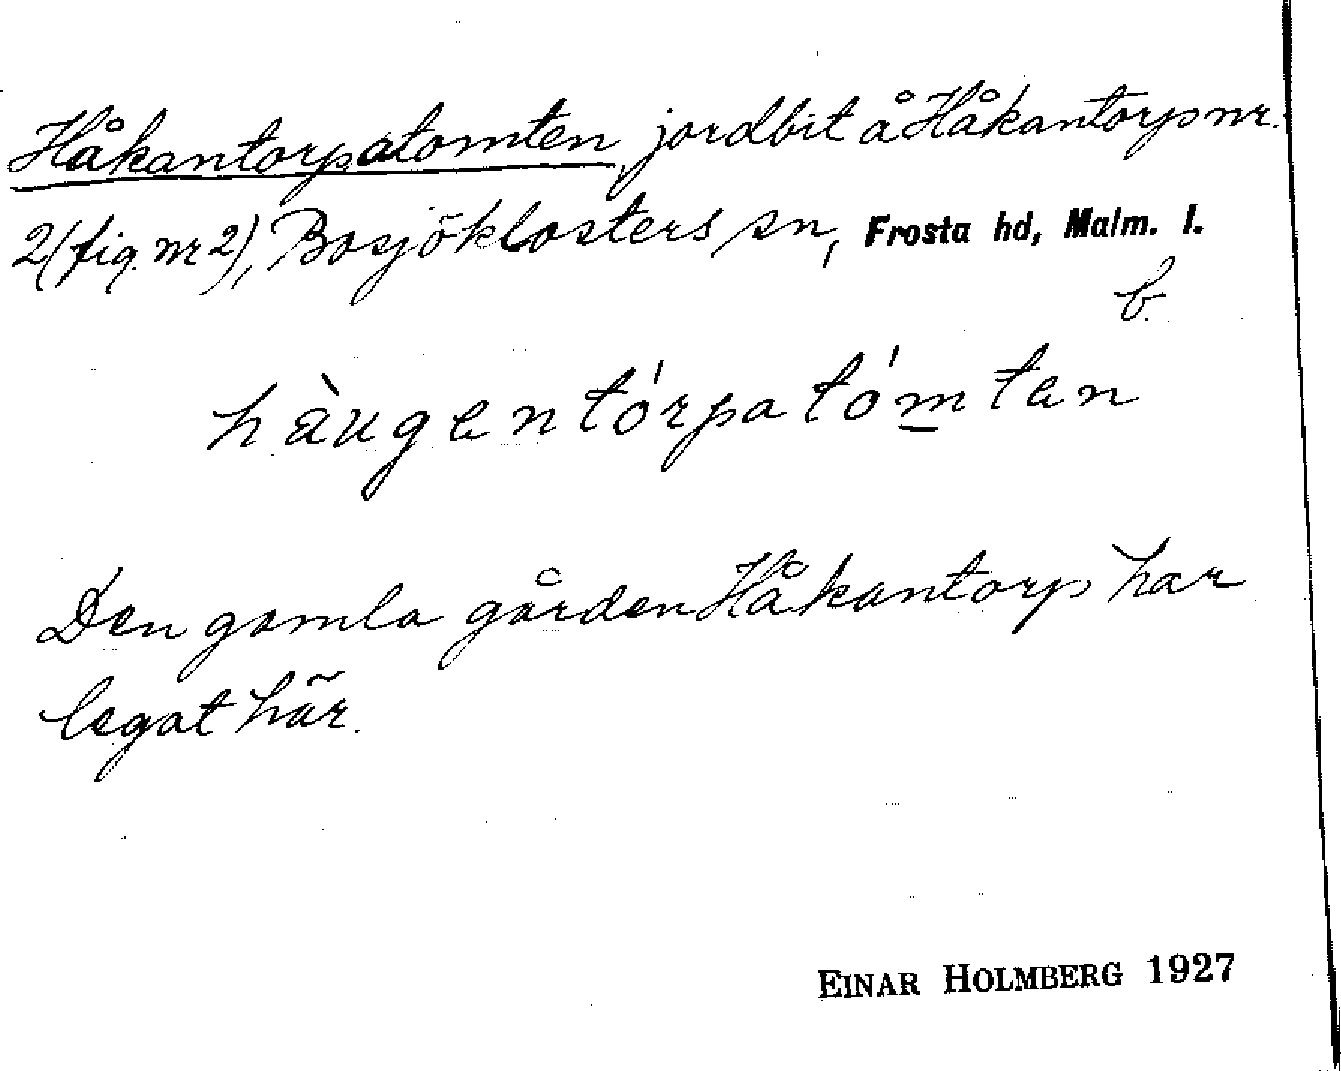 Håkantorpatomten, jordbit å Håkantorp nr.
2 (fig. nr 2), Bosjöklosters sn, Frosta hd, Malm. l.
b.
hàugentórpatómten
Den gamla gården Håkantorp har
legat här.
EINAR HOLMBERG 1927